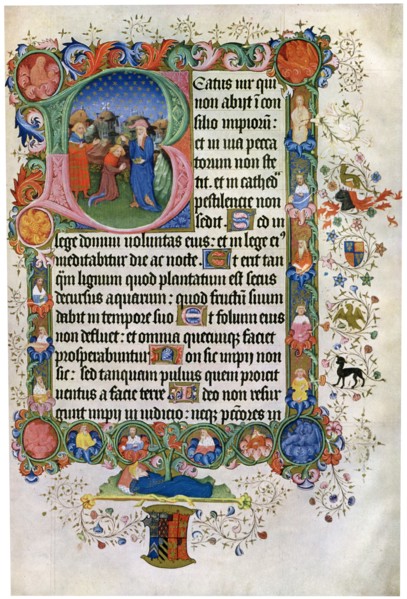 Beatus uir qui
non abijt ī con
silio impiorum:
et in uia pecca
torum non ste
tit. et in cathed
pestilencie non
sedit Sed in
lege domini uoluntas eius: et in lege ei
meditabitur die ac nocte. Et erit tan
qm lignum quod plantatum est secus
decursus aquarum: quod fructū suum
dabit in tempore suo Et folium eius
non defluet: et omnia quecunque faciet
prosperabuntur Non sic impij non
sic: sed tanquam puluis quem proicit
uentus a facie terre Ideo non resur
gunt impij in iudicio: neqz pctōres in